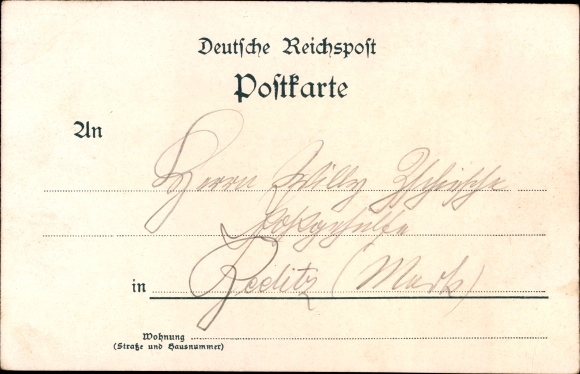 Deutsche Reichspost
Postkarte
An
Herrn Willy Zschiesche
Postgehülfe
in Beelitz (Mark)
Wohnung
(Straße und Hausnummer)